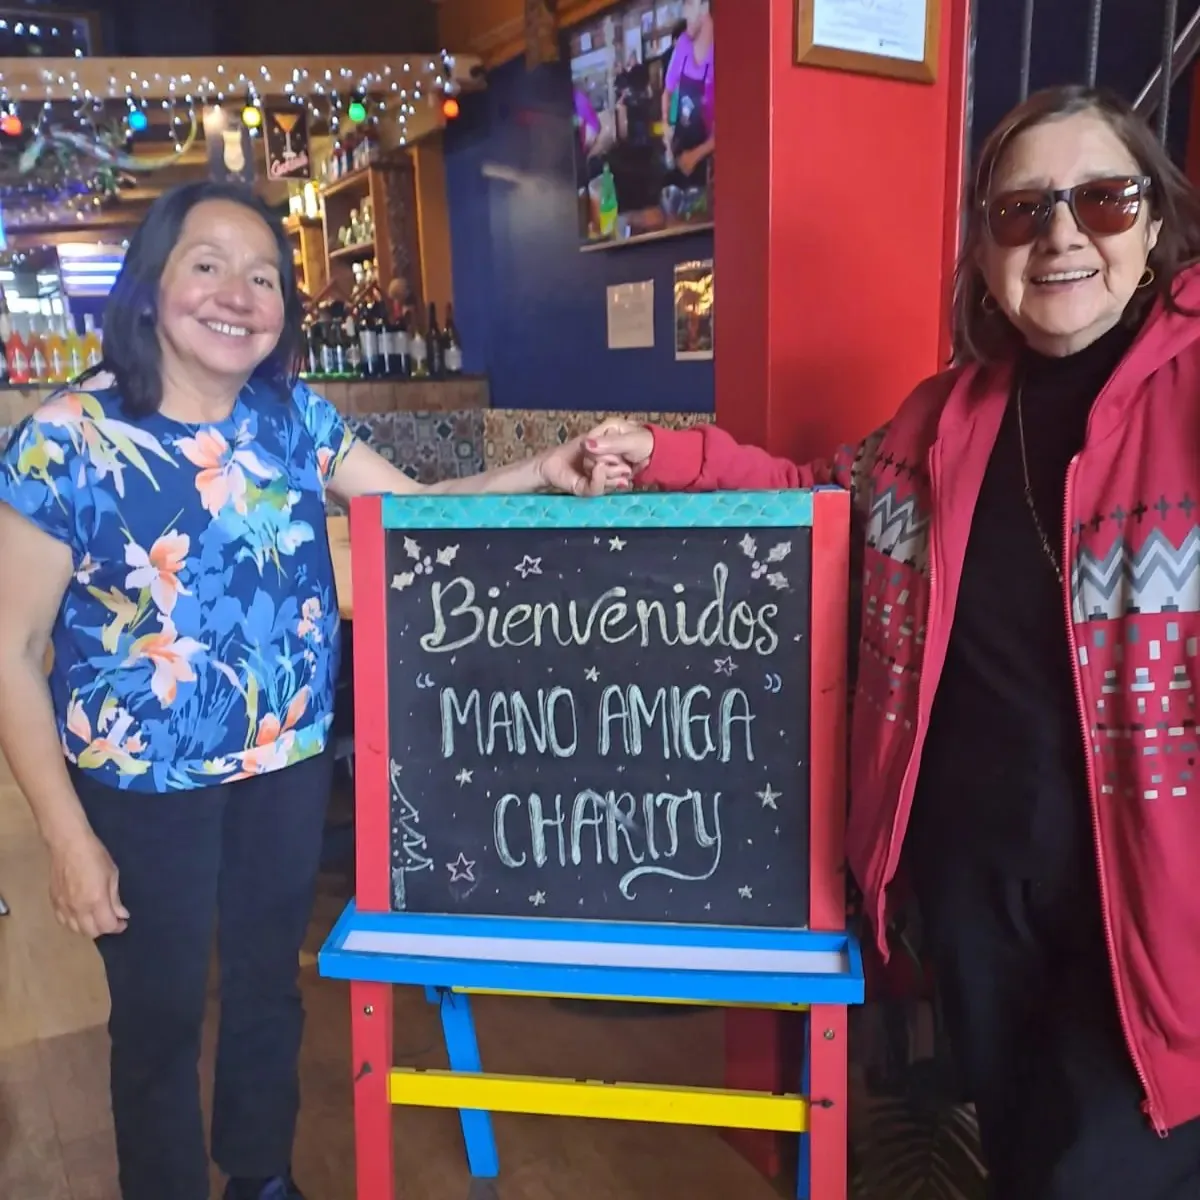 Bienvenidos
"MANO AMIGA"
CHARITY